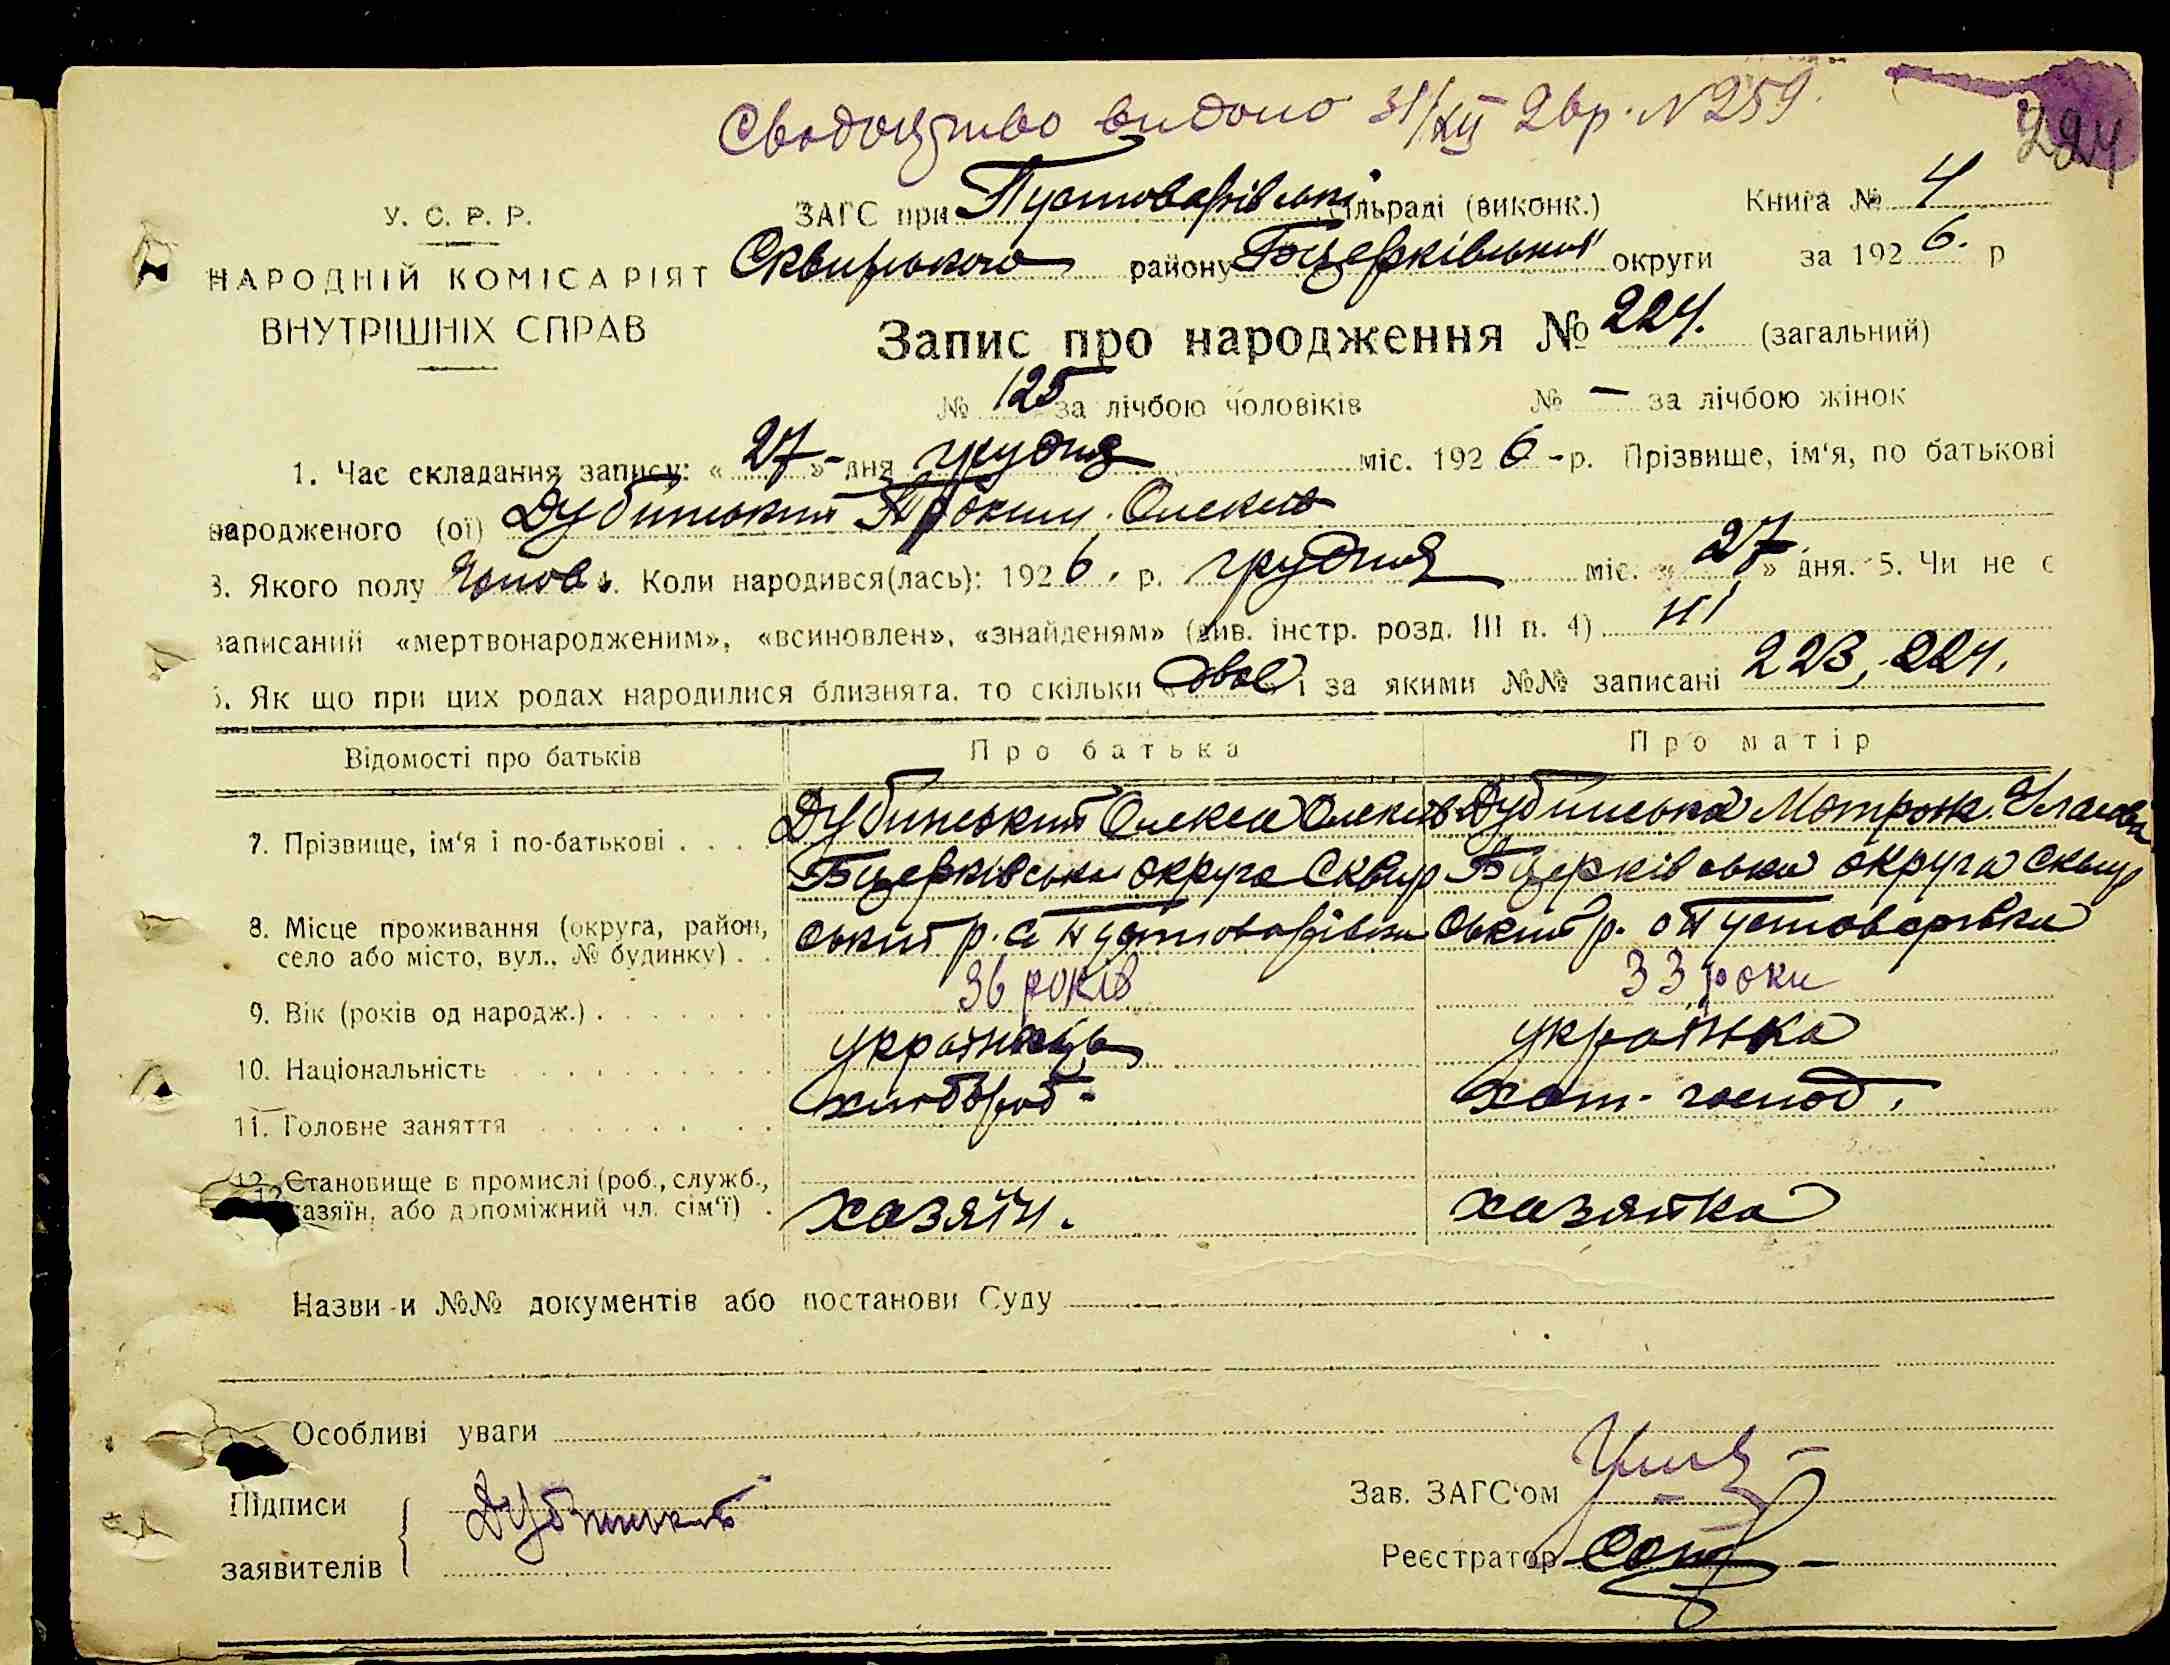 Свідоцтво видано 31/XII 26р. №259.
224
У. С. Р. Р.
НАРОДНІЙ КОМІСАРІЯТ
ВНУТРІШНІХ СПРАВ
ЗАГС при Пустоварівській сільраді (виконк.) Книга № 4
Сквирського району Бцерківської округи за 1926. р
Запис про народження № 224. (загальний)
№ 125 за лічбою чоловіків № — за лічбою жінок
1. Час складання запису: «27» дня грудня міс. 1926-р. Прізвище, ім'я, по батькові
народженого (ої) Дубинський Трохим Олексів
3. Якого полу Чолов. 4. Коли народився(лась): 1926. р. грудня міс. «27» дня. 5. Чи не є
записаний «мертвонародженим», «всиновлен», «знайденям» (див. інстр. розд. III п. 4) ні
6. Як що при цих родах народилися близнята, то скільки «двоє» і за якими №№ записані 223, 224.
Відомості про батьків Про батька Про матір
7. Прізвище, ім'я і по-батькові . . . . Дубинський Олекса Олексів Дубинська Мотрона
8. Місце проживання (округа, район, село або місто, вул., № будинку) . . Бцерківська округа Сквир Бцерківська округа Сквир
ський р. с Пустоварівка ський р. с Пустоварівка
9. Вік (років од народж.) . . . . . . . 36 років 33 роки
10. Національність . . . . . . . . . . українець українка
11. Головне заняття . . . . . . . . хлібороб- хат. господ.
12. Становище в промислі (роб., служб.,
хазяїн, або допоміжний чл. сім'ї) . хазяїн. хазяйка
Назви и №№ документів або постанови Суду
Особливі уваги
Підписи
заявителів
Дубинський
Зав. ЗАГС'ом
Реєстратор